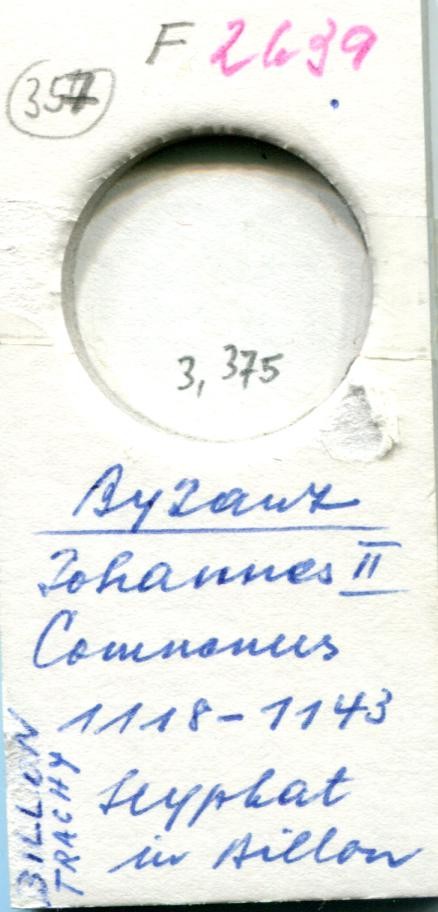 F 2639
357
3,375
Byzanz
Johannes II
Comnenus
1118-1143
Scyphat
in Billon
BILLON
TRACHY